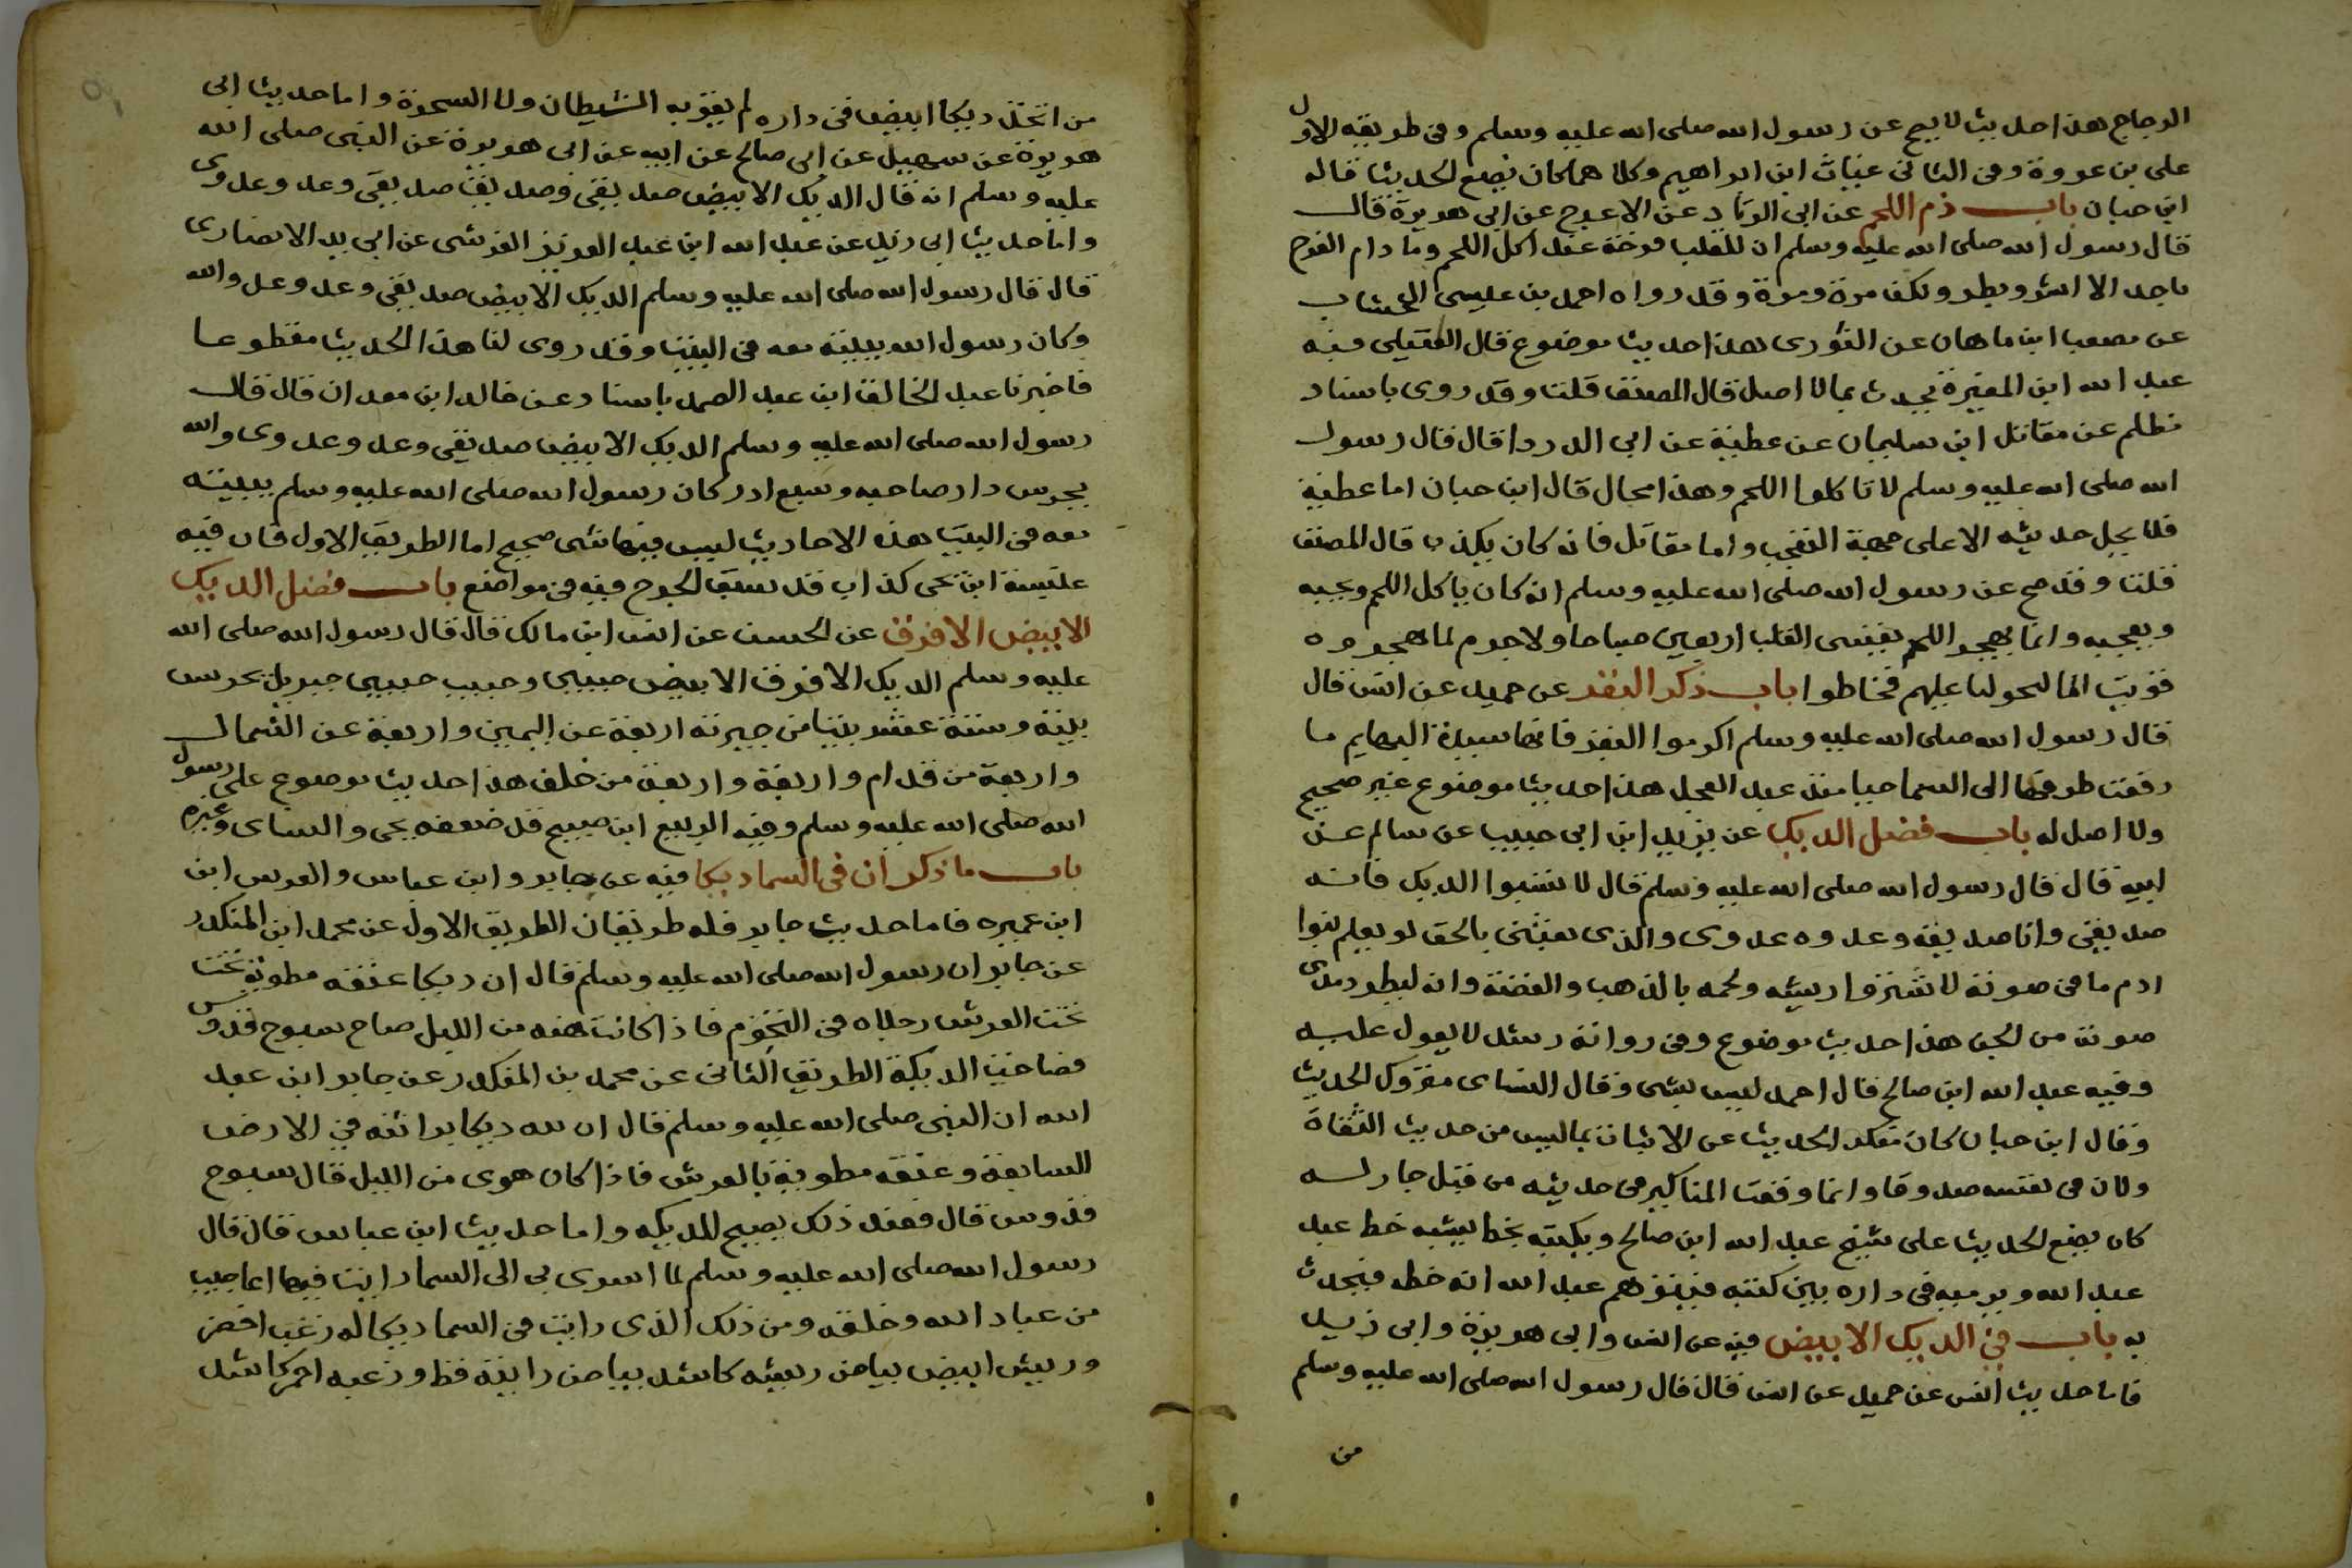 الدجاج هذا حديث لا يصح عن رسول الله صلى الله عليه وسلم وفى طريقه الاول
على بن عروة وفى الثانى غياث ابن ابراهيم وكلاهما كان يضع الحديث قاله
ابن حبان باب ذم اللحم عن ابى الزناد عن الاعرج عن ابى هريرة قال
قال رسول الله صلى الله عليه وسلم ان للقلب فرحة عند اكل اللحم وما دام الفرح
باحد الا اشر وبطر ولكن مرة ومرة وقد رواه احمد بن عيسى الخشاب
عن مصعب ابن ماهان عن الثورى هذا حديث موضوع قال العقيلى فيه
عبد الله ابن المغيرة يحدث بما لا اصل قال المصنف قلت وقد روى باسناد
مظلم عن مقاتل ابن سليمان عن عطية عن ابى الدردا قال قال رسول
الله صلى الله عليه وسلم لا تاكلوا اللحم وهذا محال قال ابن حبان اما عطية
فلا يحل حديثه الا على جهة التعجب واما مقاتل فانه كان يكذب قال المصنف
قلت وقد صح عن رسول الله صلى الله عليه وسلم انه كان ياكل اللحم ويحبه
ويعجبه وانما يهجر اللحم القلب اربعين صباحا ولا جرم لما هجروه
باب ذكر البقر عن حميد عن انس قال
قال رسول الله صلى الله عليه وسلم اكرموا البقر فانها سيدة البهايم ما
رفعت طرفها الى السما حيا منذ عبد العجل هذا حديث موضوع غير صحيح
ولا اصل له باب فضل الديك عن يزيد ابن ابى حبيب عن سالم عن
ابيه قال قال رسول الله صلى الله عليه وسلم قال لا تسبوا الديك فانه
صديقى وانا صديقه وعدوه عدوى والذى بعثنى بالحق لو يعلم بنوا
ادم ما فى صوته لاشتروا ريشه ولحمه بالذهب والفضة وانه ليطرد مدى
صوته من الجن هذا حديث موضوع وفى رواته رشد لا يعول عليه
وفيه عبد الله ابن صالح قال احمد ليس بشى وقال النساى متروك الحديث
وقال ابن حبان كان منكر الحديث عن الاثبات بما ليس من حديث الثقاة
وكان فى نفسه صدوقا وانما وقعت المناكير فى حديثه من قبل جار له
كان يضع الحديث على شيخ عبد الله ابن صالح ويكتبه بخط يشبه خط عبد
عبد الله ويرميه فى داره بين كتبه فيتوهم عبد الله انه خطه فيحدث
به باب فى الديك الابيض فيه عن انس وابى هريرة وابى زيد
فاما حديث انس عن حميد عن انس قال قال رسول الله صلى الله عليه وسلم
من
من اتخذ ديكا ابيض فى داره لم يقربه الشيطان ولا السحرة واما حديث ابى
هريرة عن سهيل عن ابى صالح عن ابيه عن ابى هريرة عن النبى صلى الله
عليه وسلم انه قال الديك الابيض صديقى وصديق صديقى وعدو عدوى
واما حديث ابى زيد عن عبد الله ابن عبد العزيز القرشى عن ابى زيد الانصارى
قال قال رسول الله صلى الله عليه وسلم الديك الابيض صديقى وعدو عدو الله
وكان رسول الله يبيته معه فى البيت وقد روى لنا هذا الحديث مقطوعا
فاخبرنا عبد الخالق ابن عبد الصمد باسناد عن خالد ابن معدان قال قال
رسول الله صلى الله عليه وسلم الديك الابيض صديقى وعدو عدوى والله
يحرس دار صاحبه وسبع ادر كان رسول الله صلى الله عليه وسلم يبيته
معه فى البيت هذه الاحاديث ليس فيها شى صحيح اما الطريق الاول فان فيه
ابن يحى كذاب قد سبق الجرح فيه فى مواضع باب فضل الديك
الابيض الافرق عن الحسن عن انس ابن مالك قال قال رسول الله صلى الله
عليه وسلم الديك الافرق الابيض حبيبى وحبيب حبيبى جبريل يحرس
بيته وستة عشر بيتا من جيرته اربعة عن اليمين واربعة عن الشمال
واربعة من قدام واربعة واربعة من خلف هذا حديث موضوع على رسول
الله صلى الله عليه وسلم وفيه الربيع ابن صبيح قد ضعفه يحى والنساى وغيره
باب ما ذكر ان فى السما ديكا فيه عن جابر وابن عباس والعرس ابن
ابن عميره فاما حديث جابر فله طريقان الطريق الاول عن محمد ابن المنكدر
عن جابر ان رسول الله صلى الله عليه وسلم قال ان ديكا عنقه مطوية تحت
تحت العرش رجلاه فى التخوم فاذا كانت هنه من الليل صاح سبوح قدوس
فصاحت الديكة الطريق الثانى عن محمد بن المنكدر عن جابر ابن عبد
الله ان النبى صلى الله عليه وسلم قال ان لله ديكا براثنه فى الارض
السابعة وعنقه مطوية بالعرش فاذا كان هوى من الليل قال سبوح
قدوس قال فعند ذلك يصيح الديكه واما حديث ابن عباس قال قال
رسول الله صلى الله عليه وسلم لما اسرى بى الى السما رايت فيها اعاجيب
من عباد الله وخلقه ومن ذلك الذى رايت فى السما ديكا له زغب اخضر
وريش ابيض بياض ريشه كاشد بياض رايته قط وزغبه اخضر كاشد